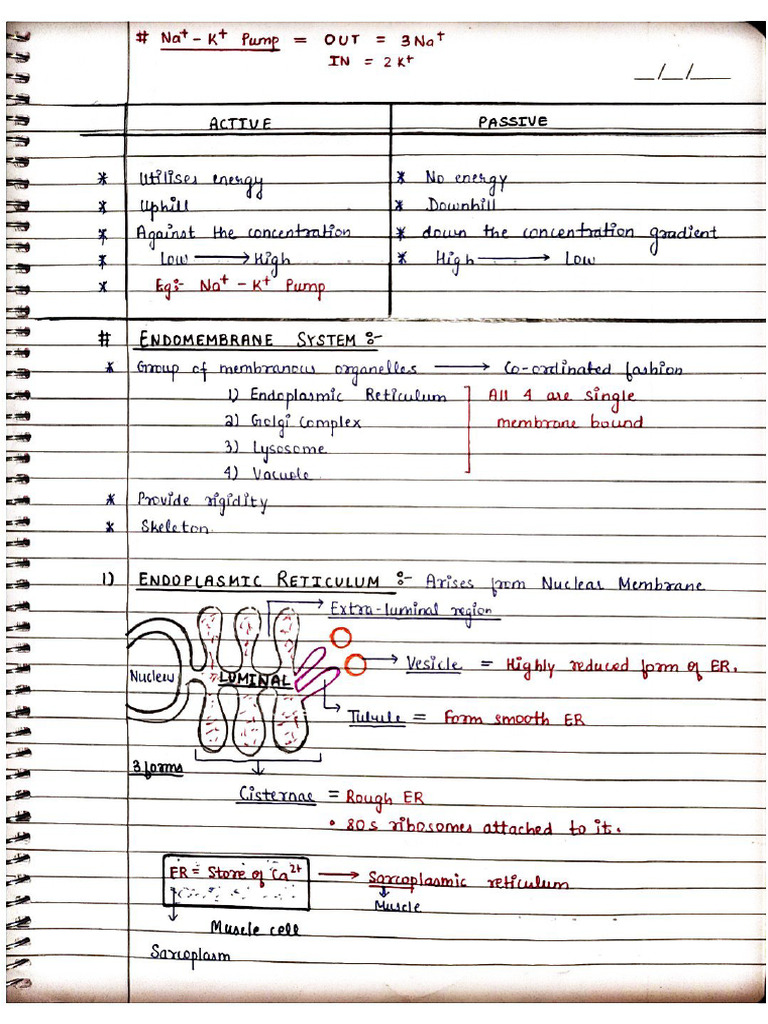 # Na⁺ - K⁺ Pump = OUT = 3Na⁺
IN = 2K⁺
_/_/__
ACTIVE PASSIVE
* Utilises energy * No energy
* Uphill * Downhill
* Against the concentration * down the concentration gradient
* Low ⟶ High * High ⟶ Low
* Eg:- Na⁺ - K⁺ Pump
# ENDOMEMBRANE SYSTEM :-
* Group of membranous organelles ⟶ Co-ordinated fashion
1) Endoplasmic Reticulum All 4 are single
2) Golgi Complex membrane bound
3) Lysosome
4) Vacuole
* Provide rigidity
* Skeleton.
1) ENDOPLASMIC RETICULUM :- Arises from Nuclear Membrane
Extra-luminal region
Vesicle = Highly reduced form of ER.
Nucleus LUMINAL
Tubule = Form smooth ER
3 forms
Cisternae = Rough ER
• 80s ribosomes attached to it.
ER = Store of Ca²⁺ ⟶ Sarcoplasmic reticulum
Muscle
Muscle cell
Sarcoplasm